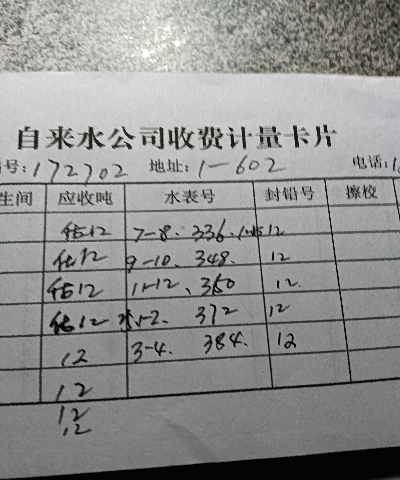 自来水公司收费计量卡片
号:172702 地址:1-602 电话:
生间 应收吨 水表号 封铅号 擦校
估12 7-8. 336. 12
估12 9-10. 348. 12
估12 11-12. 360 12.
估12 1-2. 372 12
12 3-4. 384. 12
12
12
12